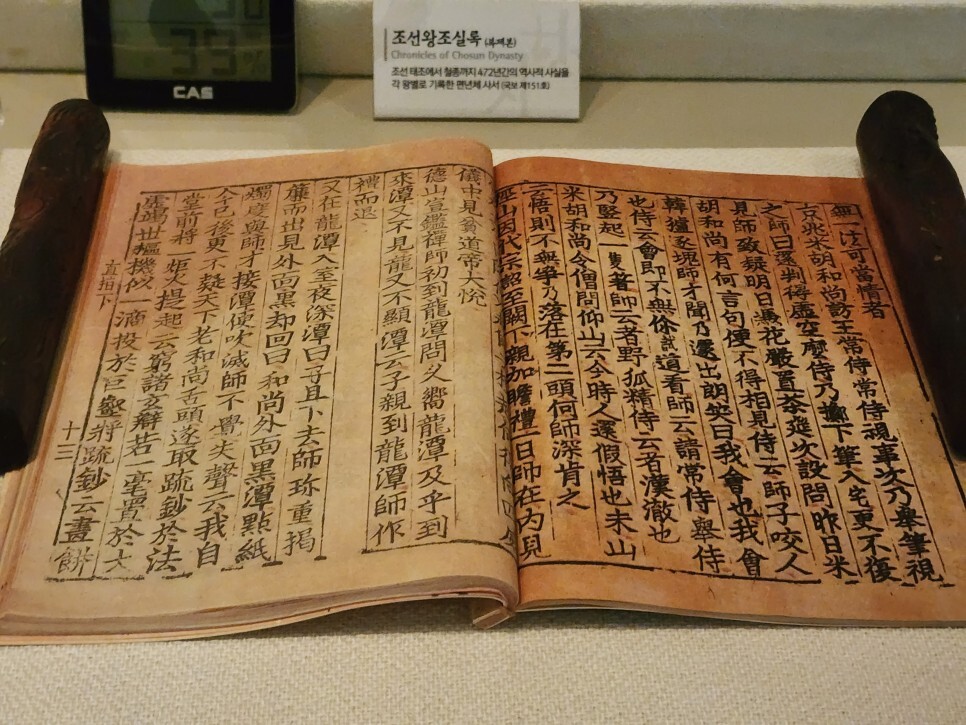 CAS
조선왕조실록 (복제본)
Chronicles of Chosun Dynasty
조선 태조에서 철종까지 472년간의 역사적 사실을
각 왕별로 기록한 편년체 사서 (국보 제151호)
無一法可當情者
京兆米胡和尚訪王常侍常侍視事次乃擧筆視
之師曰還判得虛空麽侍乃擲下筆入宅更不復
見師致疑明日馮花嚴置茶筵次設問昨日米
胡和尚有何言句便不得相見侍云師子咬人
韓獹逐塊師才聞乃還出朗笑曰我會也我會
也侍云會即不無你試道看師云請常侍擧侍
乃竪起一隻著師云者野狐精侍云者漢澈也
米胡和尚令僧問仰山云今時人還假悟也未山
云悟則不無爭乃落在第二頭何師深肯之
徑山因代宗詔至闕下親加瞻禮一日師在內見
儀中見貧道帝大悅
德山宣鑑禪師初到龍潭問久嚮龍潭及乎到
來潭又不見龍又不顯潭云子親到龍潭師作
禮而退
又在龍潭入室夜深潭曰子且下去師珍重揭
簾而出見外面黑却回曰和尚外面黑潭點紙
燭度與師才接潭便吹滅師不覺失聲云我自
今已後更不疑天下老和尚舌頭遂取䟽鈔於法
堂前將一炬火提起云窮諸玄辯若一毫置於大
虛竭世樞機似一滴投於巨壑將䟽鈔云畫餠
直指下 十三